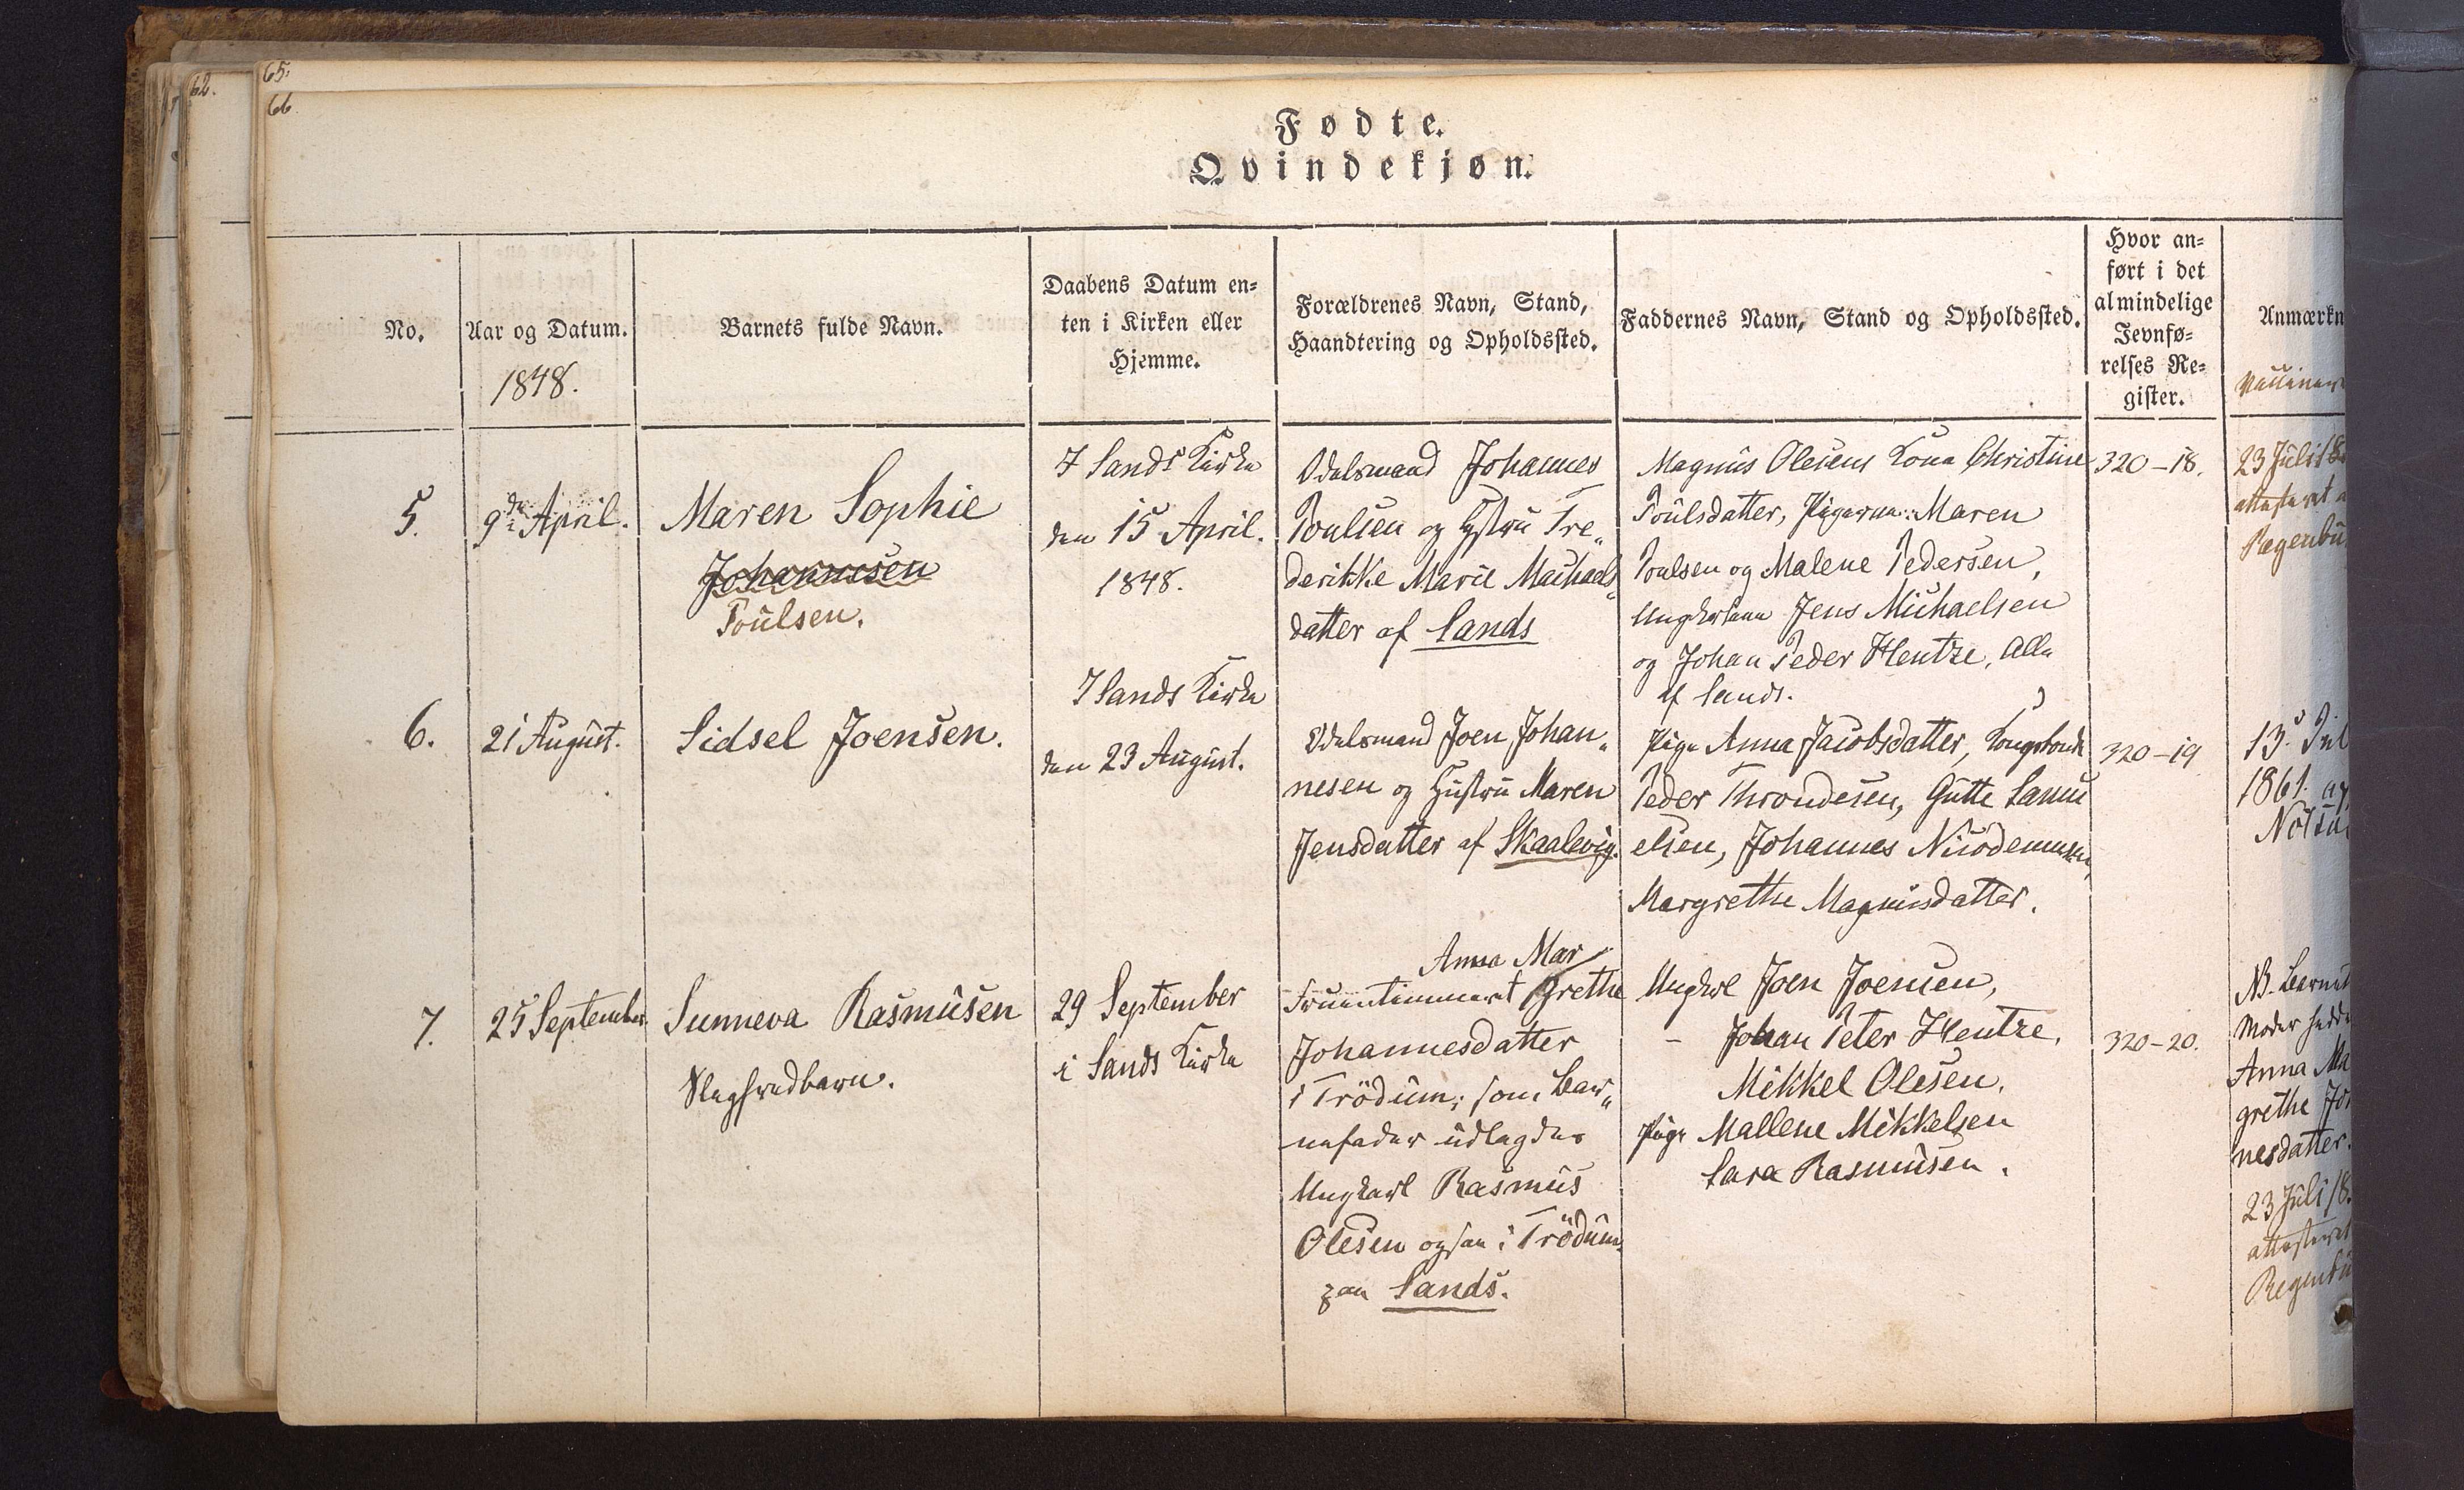 65.
62.
66.
Fødte.
Qvindekjøn.
No.
Aar og Datum.
1848.
Barnets fulde Navn.
Daabens Datum en-
ten i Kirken eller
Hjemme.
Forældrenes Navn, Stand,
Haandtering og Opholdssted.
Faddernes Navn, Stand og Opholdssted.
Hvor an-
ført i det
almindelige
Jevnfø-
relses Re-
gister.
Anmærkn
5.
9de April.
Maren Sophie
Johannesen
Poulsen.
I Sands Kirke
den 15 April.
1848.
Odelsmand Johannes
Poulsen og Hustru Fre„
derikke Marie Michaels„
datter af Sands
Magnus Olesens Kona Christine
Poulsdatter, Pigerne: Maren
Poulsen og Malene Pedersen,
Ungkarlene Jens Michaelsen
og Johan Peder Hentze, Alle
af Sands.
320-18.
23 Juli 18
attesteret
6.
21 August.
Sidsel Joensen.
I Sands Kirke
den 23 August.
Odelsmand Joen Johan„
nesen og Hustru Maren
Jensdatter af Skaalevig.
Pige Anna Jacobsdatter, Kongsbonde
Peder Throndesen, Gutte Samu
elsen, Johannes Nicodemussen,
Margrethe Magnusdatter.
320-19
13. Jul
1861.
7.
25 September
Sunneva Rasmusen
Slegfredbarn.
29 September
i Sands Kirke
Anna Mar
Fruentimmeret grethe
Johannesdatter
i Trödum; som Bar„
nefader udlagdes
Ungkarl Rasmus
Olesen ogsaa i Trödum
paa Sands.
Ungkarl Joen Joensen,
- Johan Peter Hentze,
Mikkel Olesen.
Pige Mallene Mikkelsen
Sara Rasmusen.
320-20.
NB. Barnets
Moder hedder
Anna Ma
grethe Jo
nesdatter.
23 Juli 18
attesteret